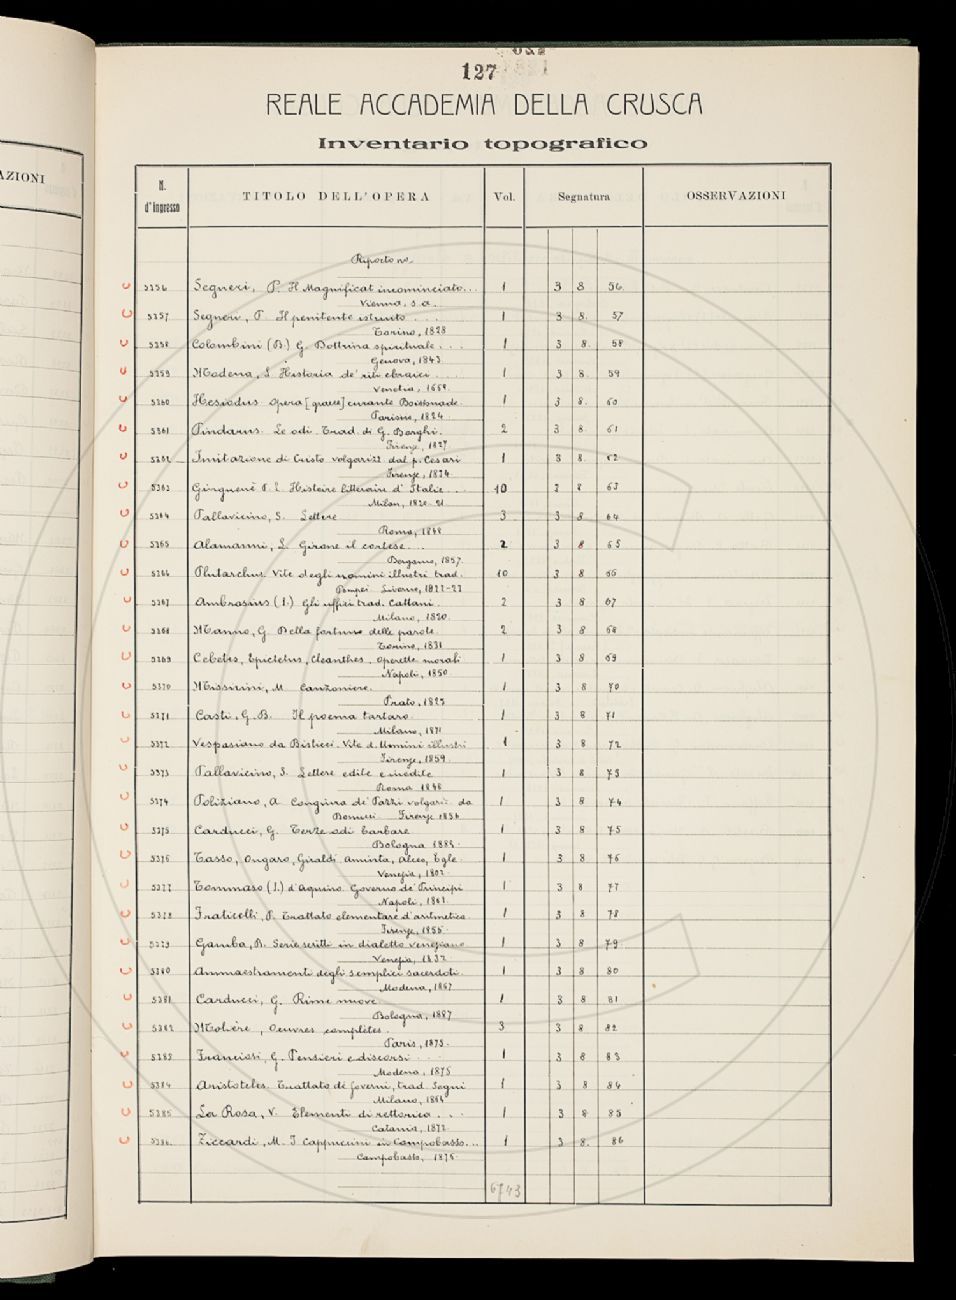 AZIONI
127
REALE ACCADEMIA DELLA CRUSCA
Inventario topografico
N. d'ingresso TITOLO DELL'OPERA Vol. Segnatura OSSERVAZIONI
Riporto no.
5356 Segneri, P. Il Magnificat incominciato... 1 3 8 56.
Vienna, s.a.
5357 Segneri, P. Il penitente istruito . . . 1 3 8. 57
Torino, 1828
5358 Colombini (B.) G. Dottrina spirituale . . . 1 3 8. 58
Genova, 1843
5359 Modena, L. Historia de' riti ebraici . . . 1 3 8. 59
Venetia, 1669.
5360 Hesiodus Opera [graece] curante Boissonade. 1 3 8. 60
Parisiis, 1824.
5361 Pindarus. Le odi. Trad. di G. Borghi. 2 3 8. 61
Firenze, 1827.
5362 Imitazione di Cristo volgarizz. dal p. Cesari 1 3 8. 62
Firenze, 1834
5363 Ginguené P. L. Histoire litteraire d'Italie . . . 10 3 8 63
Milan, 1820-21.
5364 Pallavicino, S. Lettere 3 3 8 64
Roma, 1848
5365 Alamanni, L. Girone il cortese . . . 2 3 8 65
Bergamo, 1757.
5366 Plutarchus. Vite degli uomini illustri trad. 10 3 8 66
Pompei Livorno, 1822-23
5367 Ambrosius (S.) Gli uffizi trad. Cattani. 2 3 8 67
Milano, 1820.
5368 Manno, G. Della fortuna delle parole. 2 3 8 68
Torino, 1831
5369 Cebetes, Epictetus, Cleanthes. Operette morali 1 3 8 69
Napoli, 1850.
5370 Missirini, M. Canzoniere. 1 3 8 70
Prato, 1825
5371 Casti, G. B. Il poema tartaro. 1 3 8 71
Milano, 1871
5372 Vespasiano da Bisticci. Vite d. Uomini illustri 1 3 8 72
Firenze, 1859.
5373 Pallavicino, S. Lettere edite e inedite 1 3 8 73
Roma 1848
5374 Poliziano, A. Congiura de' Pazzi volgariz. da 1 3 8 74
Bonucci Firenze 1856
5375 Carducci, G. Terze odi barbare 1 3 8 75
Bologna 1889.
5376 Tasso, Ongaro, Giraldi Aminta, Alceo, Egle. 1 3 8 76
Venezia, 1802.
5377 Tommaso (S.) d'Aquino. Governo de' Principi 1 3 8 77
Napoli, 1861.
5378 Fraticelli, P. Trattato elementare d'aritmetica. 1 3 8 78
Firenze, 1856.
5379 Gamba, B. Serie scritti in dialetto veneziano 1 3 8 79
Venezia, 1832.
5380 Ammaestramenti degli semplici sacerdoti. 1 3 8 80
Modena, 1867
5381 Carducci, G. Rime nuove. 1 3 8 81
Bologna, 1887
5382 Molière, Oeuvres complètes. 3 3 8 82
Paris, 1875.
5383 Franciosi, G. Pensieri e discorsi . . . 1 3 8 83
Modena, 1875
5384 Aristoteles. Trattato dei Governi, trad. Segni 1 3 8 84
Milano, 1864
5385 La Rosa, V. Elementi di rettorica . . . 1 3 8 85
Catania, 1872.
5386. Ziccardi, M. I Cappuccini in Campobasso... 1 3 8. 86
Campobasso, 1876.
6743